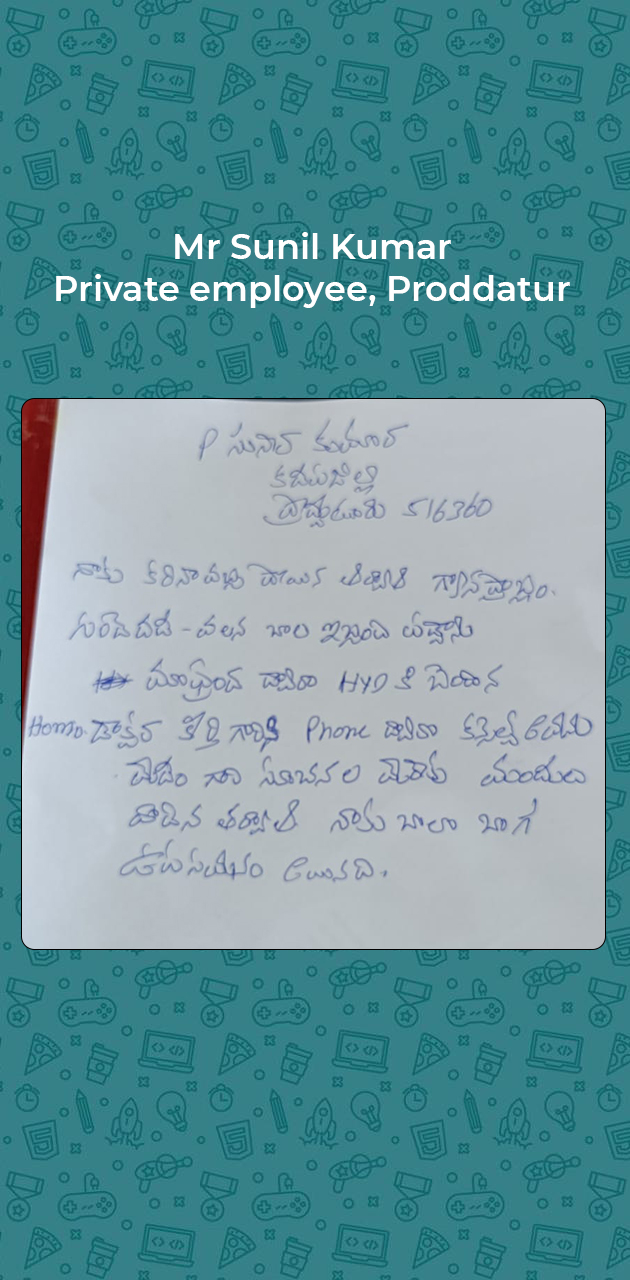 Mr Sunil Kumar
Private employee, Proddatur
P సునీల్ కుమార్
కడపజిల్లా
ప్రొద్దుటూరు 516360
నాకు కరినా వచ్చి పోయిన తర్వాత గ్యాస్ ప్రాబ్లం.
గుండెదడ - వలన చాల ఇబ్బంది పడ్డాను
మా ద్వారా HYD కి చెందిన
Homo. డాక్టర్ గారికి Phone ద్వారా కన్సల్ట్ అయి
మేడం గారి సూచనల మేరకు మందులు
వాడిన తర్వాత నాకు చాలా బాగ
ఉపశమనం అయినది.